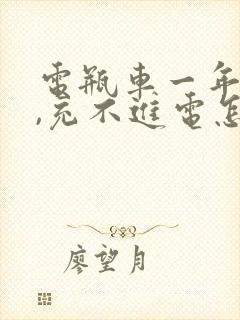 電瓶車一年
,充不進電怎
廖望月